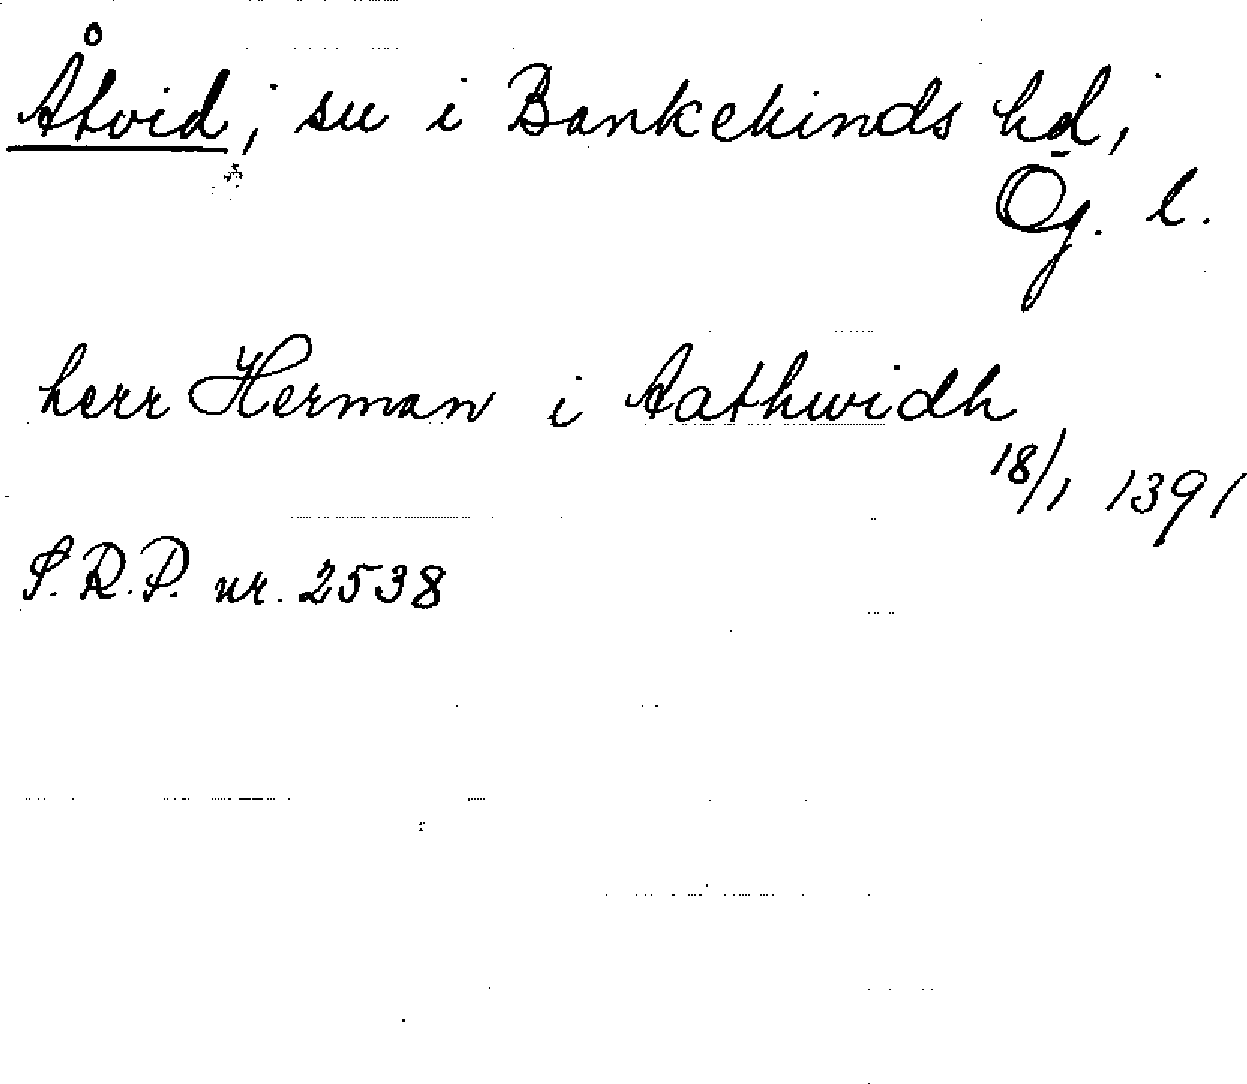 Åtvid, su i Bankekinds hd,
Ög. l.
herr Herman i Aathwidh
18/1 1391
S.R.P. nr. 2538